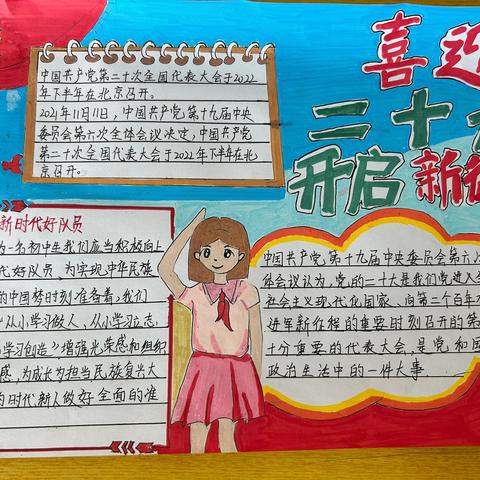 喜迎
二十大
开启新征
中国共产党第二十次全国代表大会于2022
年下半年在北京召开。
2021年11月11日，中国共产党第十九届中央
委员会第六次全体会议决定，中国共产党
第二十次全国代表大会于2022年下半年在北
京召开。
新时代好队员
为一名初中生我们应当积极向上
代好队员 为实现中华民族
的中国梦时刻准备着，我们
从小学习做人，从小学习立志，
学习创造》增强光荣感和组织
感，为成长为担当民族复兴大
的时代新人做好全面的准
中国共产党第十九届中央委员会第六次
体会议认为，党的二十大是我们党进入全
社会主义现代化国家、向第二个百年
进军新征程的重要时刻召开的第
十分重要的代表大会，是党和国
政治生活中的一件大事